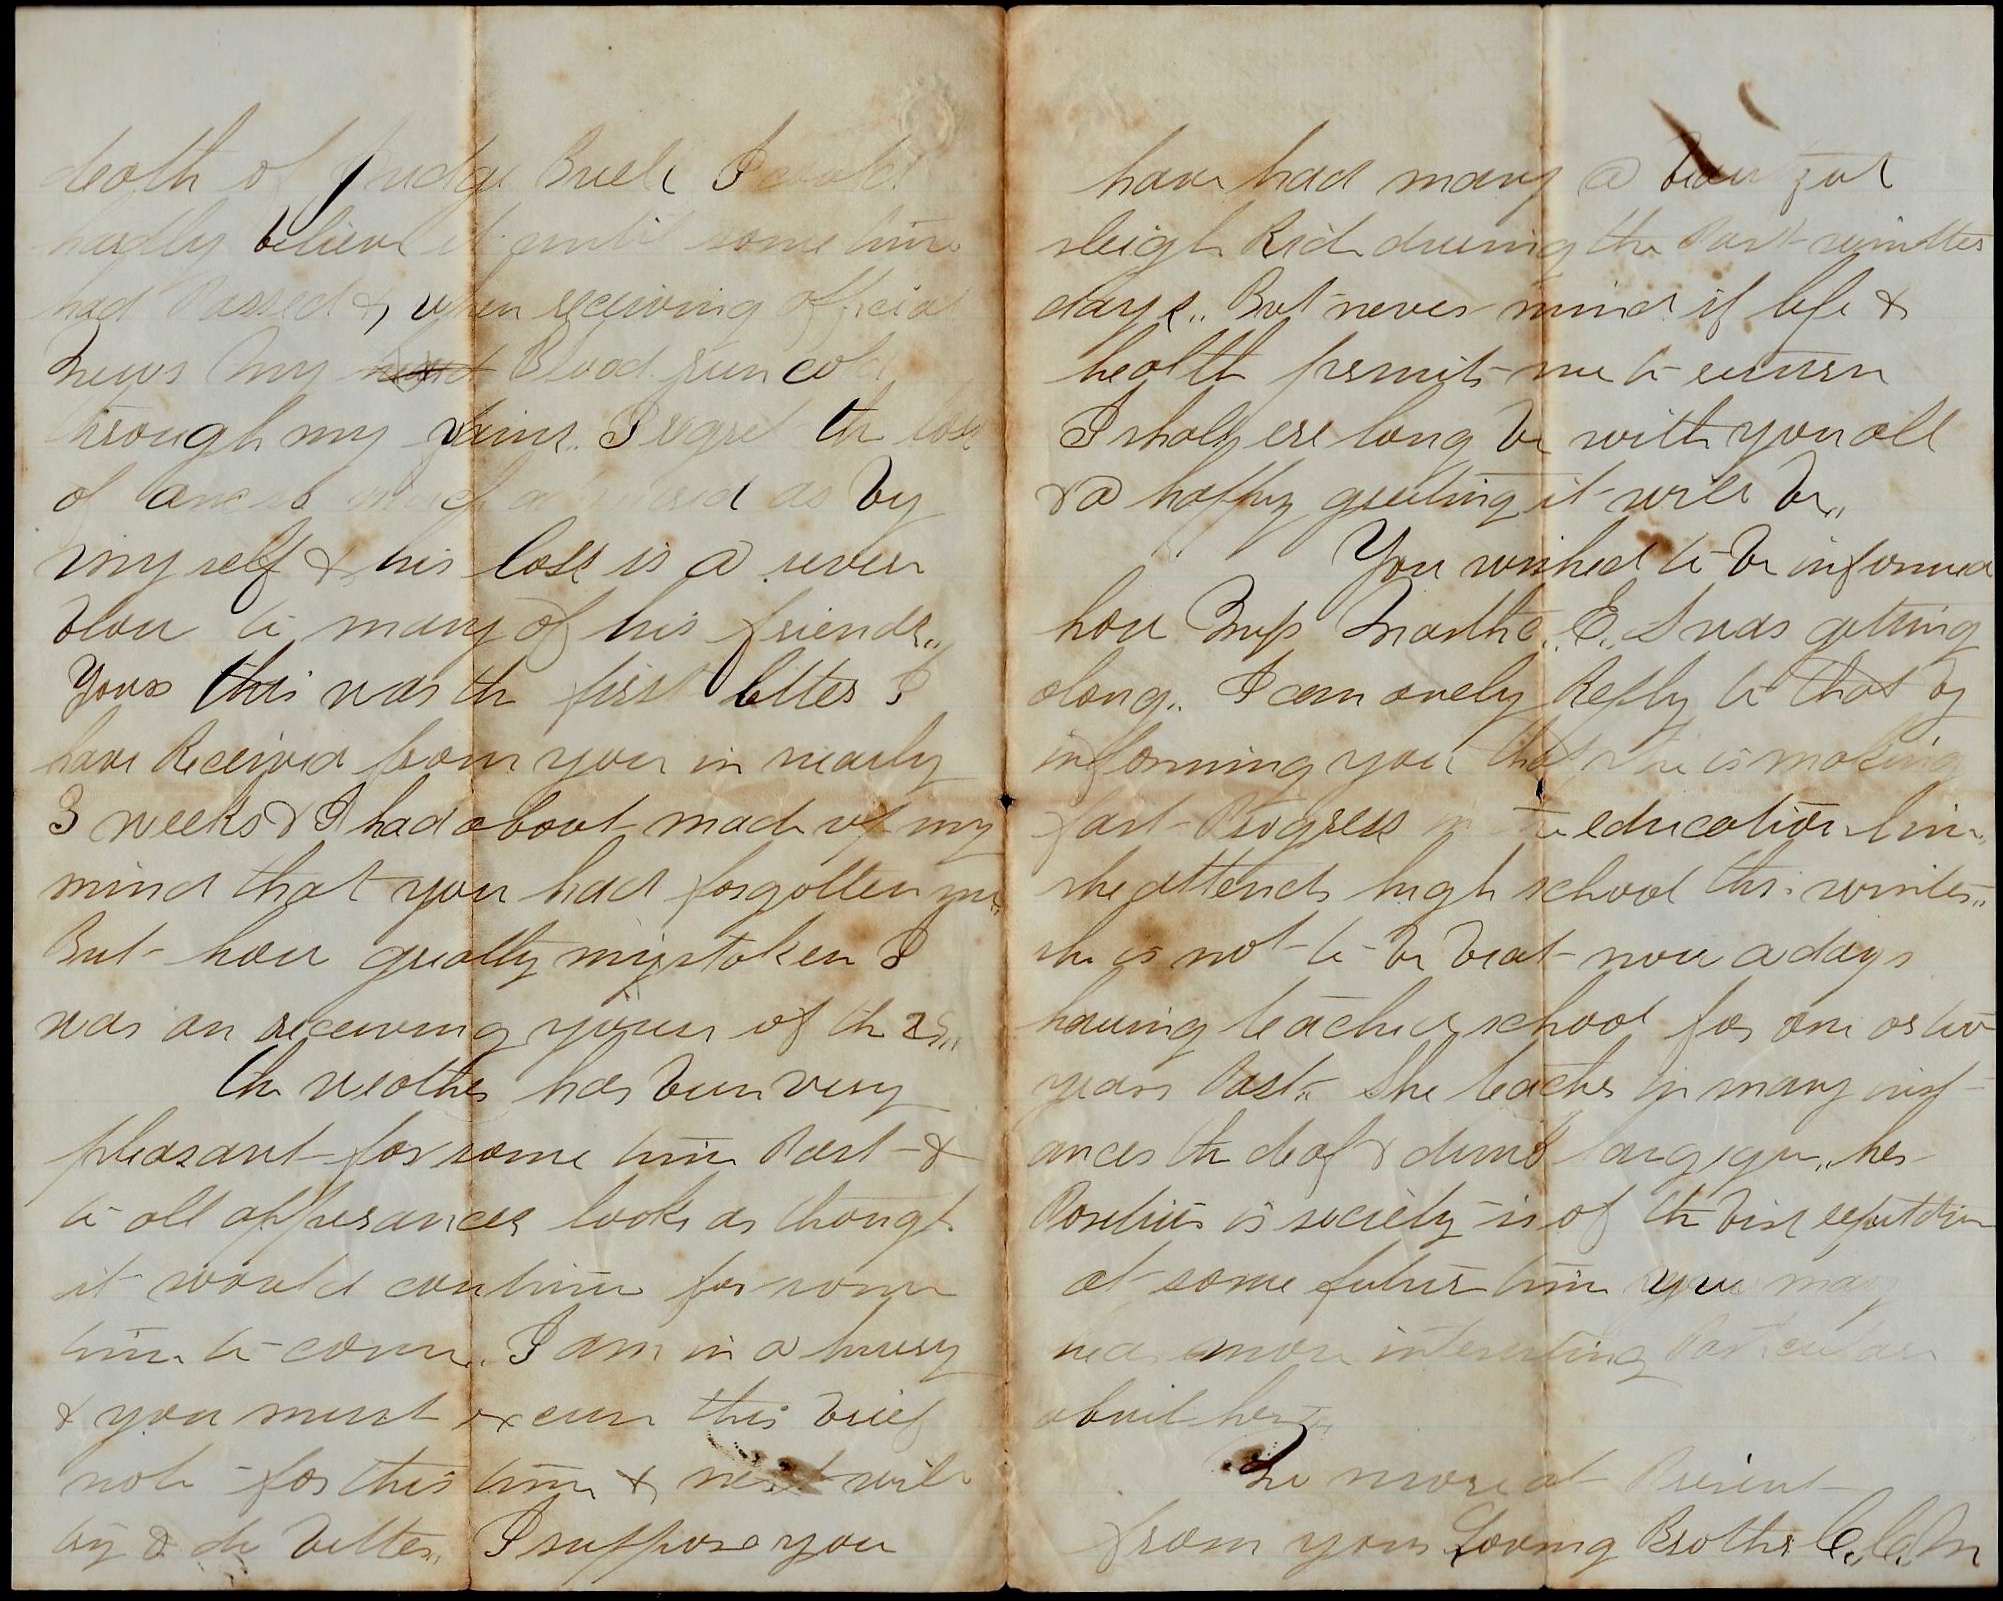 death of Judge Buell I could
hardly believe it until some time
had Passed &, when receiving official
news My heart Blood run cold
through my veins.. I regret the loss
of one so much as by
my self & his loss is a severe
blow to many of his friends..
Yours this was the first letter I
have Received from you in nearly
3 weeks & I had about made up my
mind that you had forgotten me..
But how greatly mistaken I
was on receiving yours of the 25..
the weather has been very
pleasant for some time Past &
to all appearances looks as though
it would continue for some
time to come.. I am in a hurry
& you must excuse this brief
note for this time & next will
try & do better.. I suppose you
have had many a beautiful
sleigh Ride during the Past winter
days.. But never mind if life &
health permits me to return
I shall ere long be with you all
& a happy greeting it will be..
You wished to be informed
how Miss Martha. E.. S was getting
along.. I can onely Reply to that by
informing you that she is making
fast Progress in the education line..
she attends high school this winter..
she is not to be beat now a days
having teached school for one or two
years Past.. She teaches in many inst
ances the deaf & dumb.. her
Position is society is of the best reputation
at some future time you may
hear more interesting Particulars
about her..
No more at Present
from your Loving Brother C.. C.. M